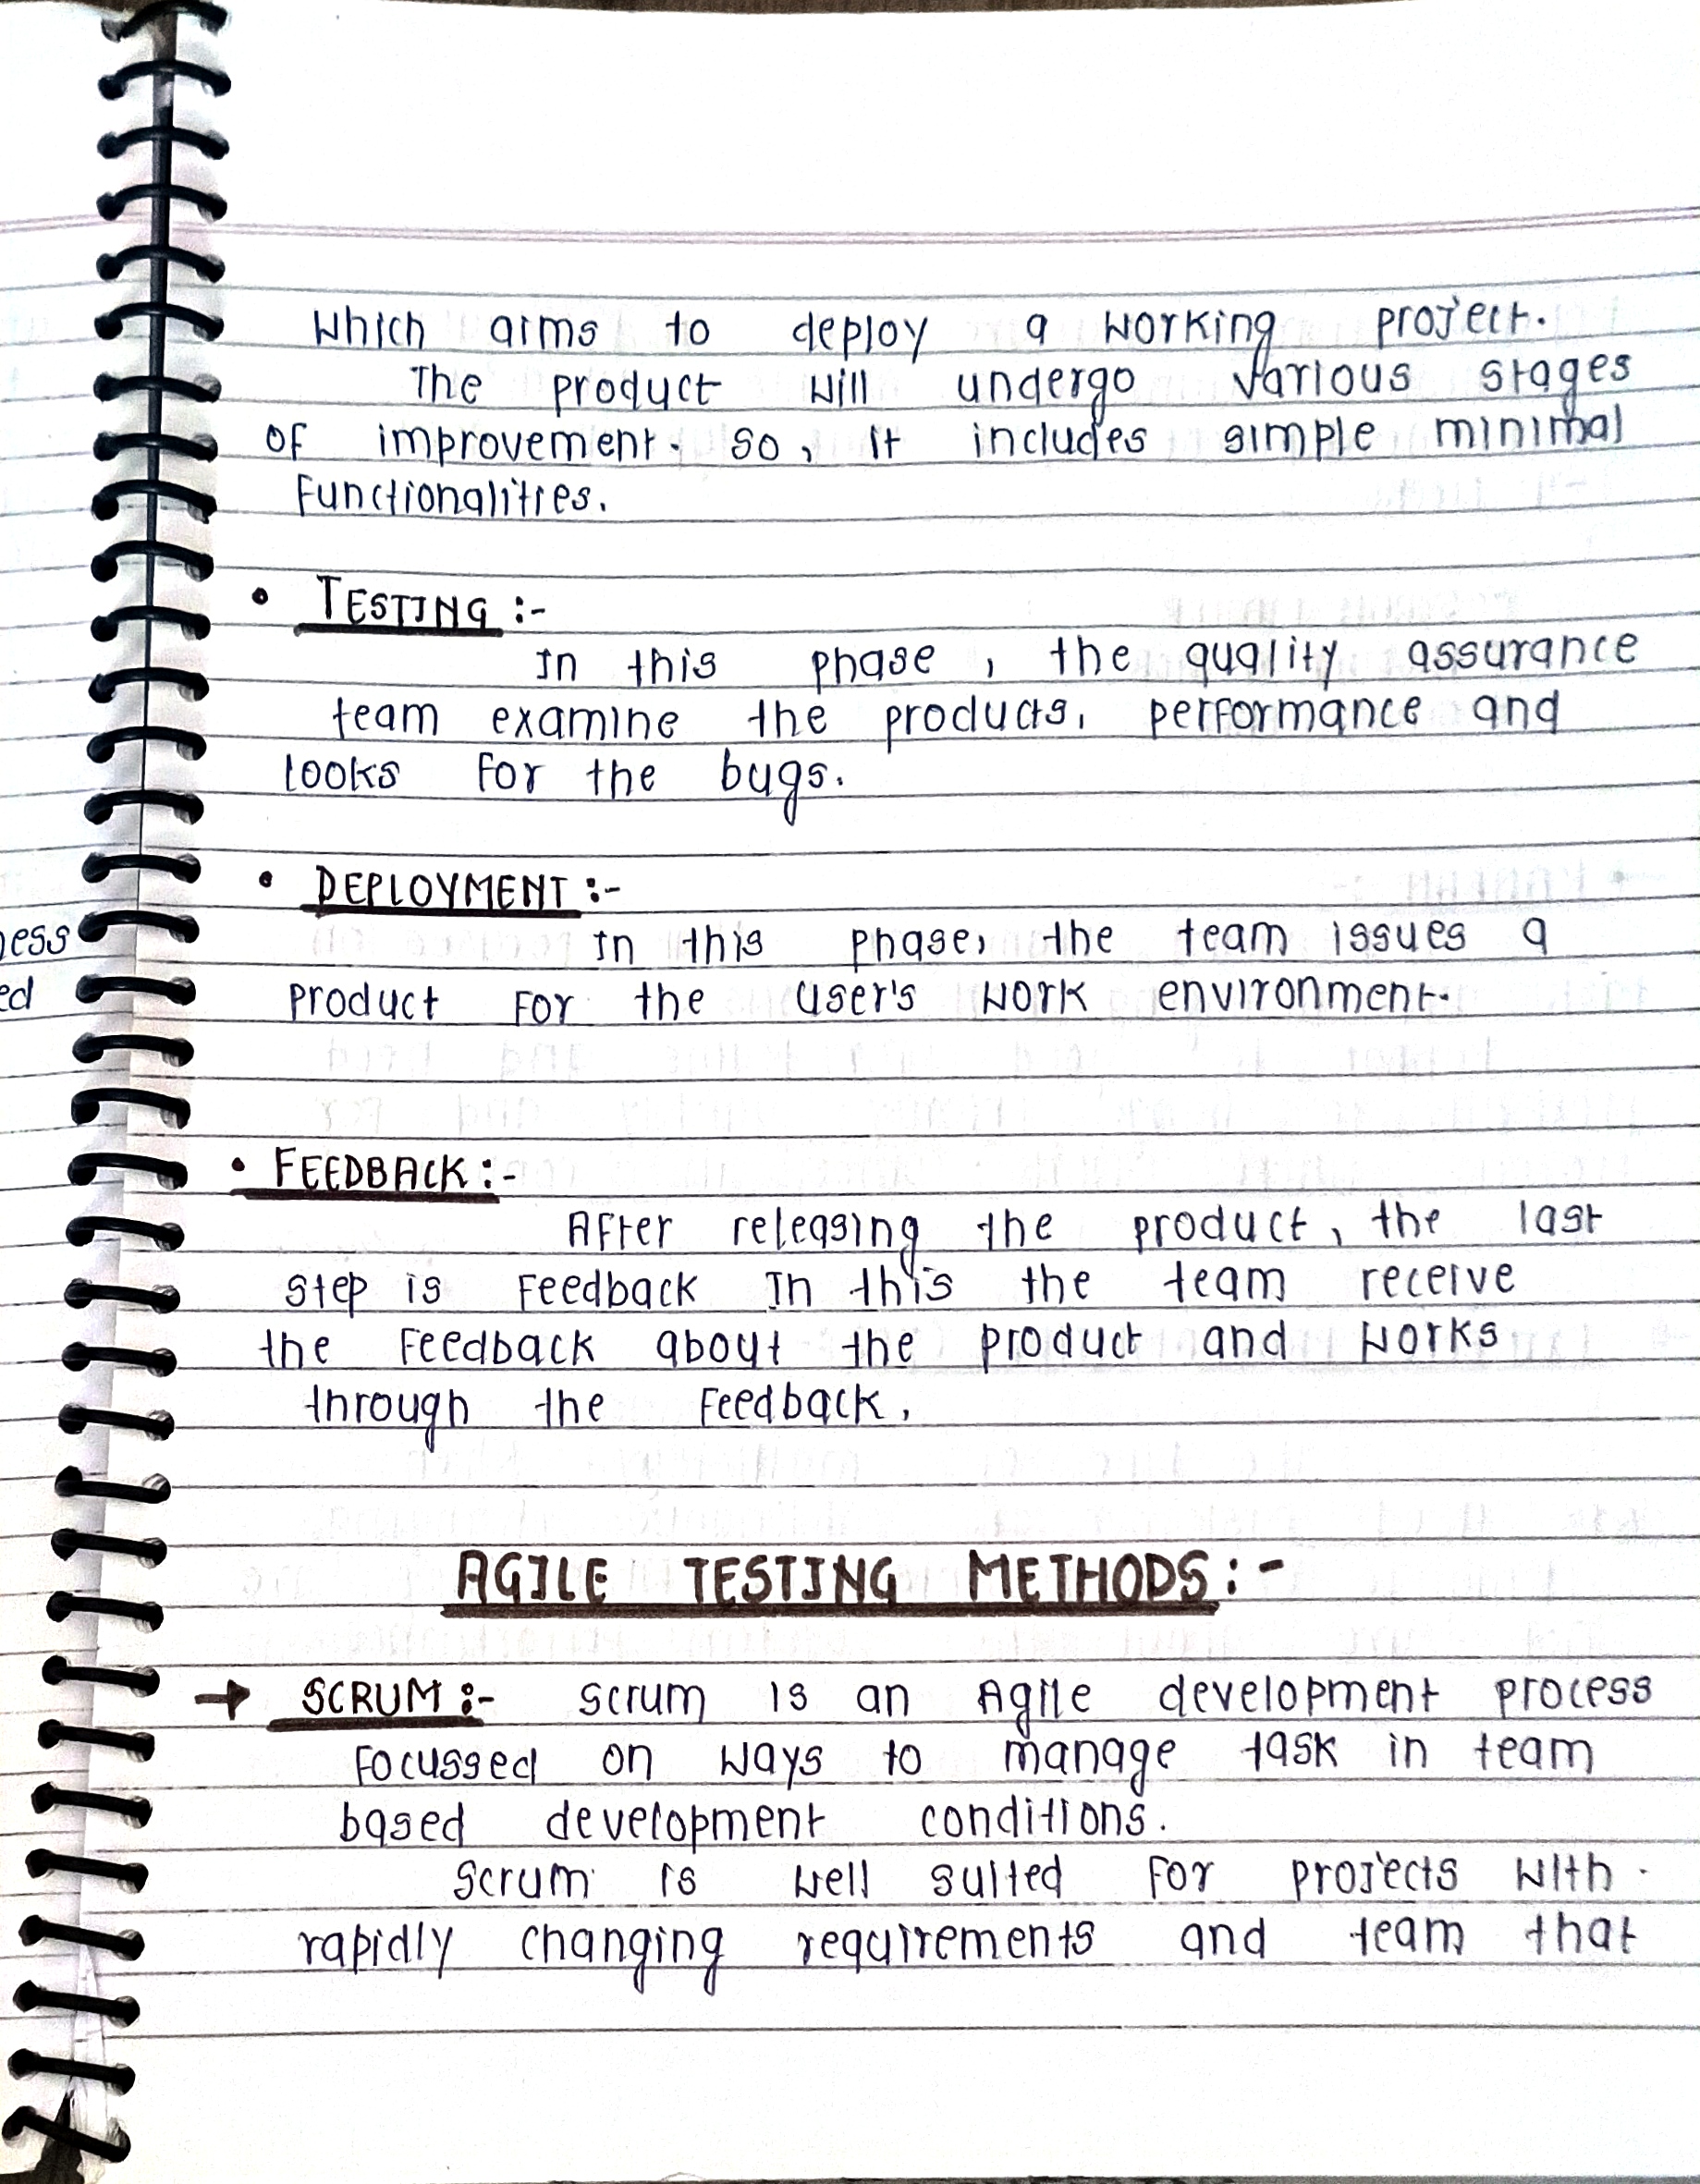 which aims to deploy a working project.
The product will undergo various stages
of improvement. so, it includes simple minimal
functionalities.
• TESTING :-
In this phase, the quality assurance
team examine the products, performance and
looks for the bugs.
• DEPLOYMENT :-
In this phase, the team issues a
product for the user's work environment.
• FEEDBACK :-
After releasing the product, the last
step is feedback In this the team receive
the feedback about the product and works
through the feedback.
AGILE TESTING METHODS :-
→ SCRUM :- scrum is an Agile development process
focussed on ways to manage task in team
based development conditions.
scrum is well suited for projects with
rapidly changing requirements and team that